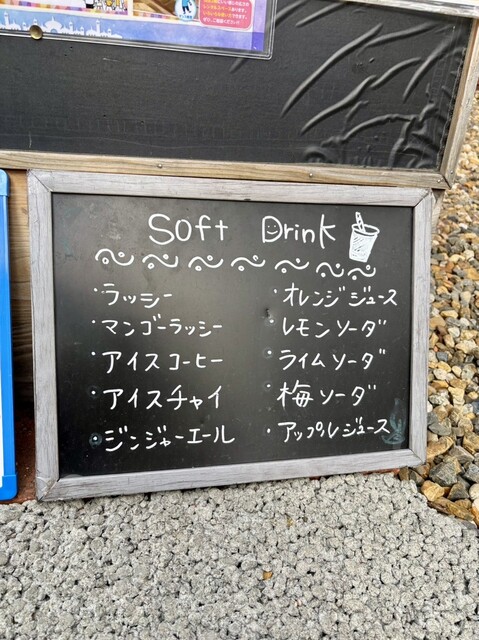 Soft Drink
・ラッシー
・マンゴーラッシー
・アイスコーヒー
・アイスチャイ
・ジンジャーエール
・オレンジジュース
・レモンソーダ
・ライムソーダ
・梅ソーダ
・アップルジュース